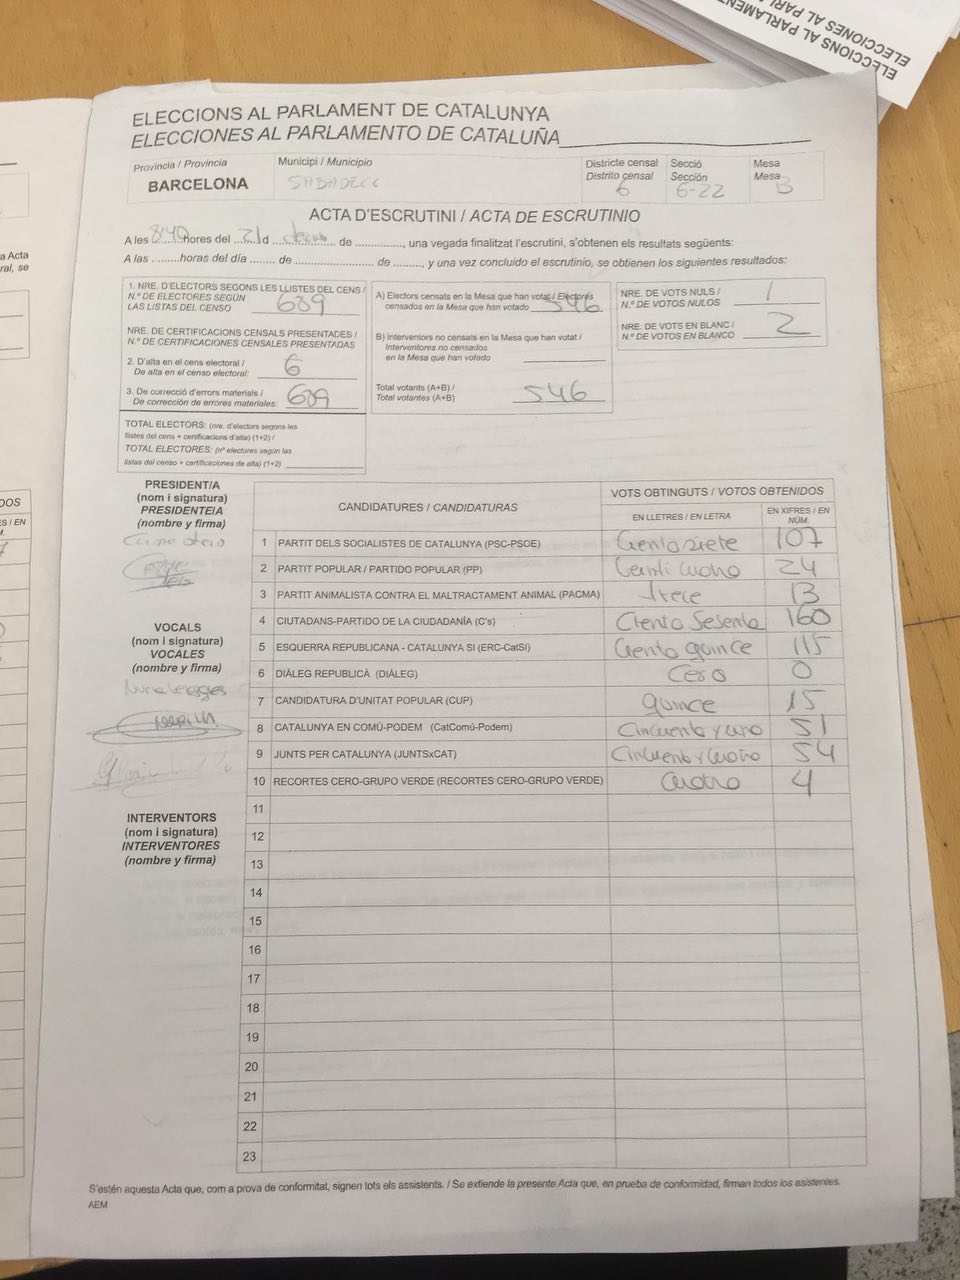 ELECCIONS AL PARLAMENT
ELECCIONES AL PARLAMEN
ELECCIONS AL PARLAMENT DE CATALUNYA
ELECCIONES AL PARLAMENTO DE CATALUÑA
Provincia / Provincia
BARCELONA
Municipi / Municipio
SABADELL
Districte censal
Distrito censal
6
Secció
Sección
6-22
Mesa
Mesa
B
ACTA D'ESCRUTINI / ACTA DE ESCRUTINIO
A les 8:40 hores del 21 d de .............., una vegada finalitzat l'escrutini, s'obtenen els resultats següents:
A las .........horas del día ........ de ........................ de ........, y una vez concluido el escrutinio, se obtienen los siguientes resultados:
1. NRE. D'ELECTORS SEGONS LES LLISTES DEL CENS /
N.º DE ELECTORES SEGÚN
LAS LISTAS DEL CENSO 689
NRE. DE CERTIFICACIONS CENSALS PRESENTADES /
N.º DE CERTIFICACIONES CENSALES PRESENTADAS
2. D'alta en el cens electoral /
De alta en el censo electoral: 6
3. De correcció d'errors materials /
De corrección de errores materiales: 689
TOTAL ELECTORS: (nre. d'electors segons les
llistes del cens + certificacions d'alta) (1+2) /
TOTAL ELECTORES: (nº electores según las
listas del censo + certificaciones de alta) (1+2)
A) Electors censats en la Mesa que han votat / Electores
censados en la Mesa que han votado 546
B) Interventors no censats en la Mesa que han votat /
Interventores no censados
en la Mesa que han votado
Total votants (A+B) /
Total votantes (A+B) 546
NRE. DE VOTS NULS /
N.º DE VOTOS NULOS 1
NRE. DE VOTS EN BLANC /
N.º DE VOTOS EN BLANCO 2
PRESIDENT/A
(nom i signatura)
PRESIDENTE/A
(nombre y firma)
VOCALS
(nom i signatura)
VOCALES
(nombre y firma)
INTERVENTORS
(nom i signatura)
INTERVENTORES
(nombre y firma)
CANDIDATURES / CANDIDATURAS
VOTS OBTINGUTS / VOTOS OBTENIDOS
EN LLETRES / EN LETRA
EN XIFRES / EN NÚM.
1 PARTIT DELS SOCIALISTES DE CATALUNYA (PSC-PSOE) Cientosiete 107
2 PARTIT POPULAR / PARTIDO POPULAR (PP) Veinti cuatro 24
3 PARTIT ANIMALISTA CONTRA EL MALTRACTAMENT ANIMAL (PACMA) trece 13
4 CIUTADANS-PARTIDO DE LA CIUDADANÍA (C's) Ciento Sesenta 160
5 ESQUERRA REPUBLICANA - CATALUNYA SI (ERC-CatSí) Ciento quince 115
6 DIÀLEG REPUBLICÀ (DIÀLEG) Cero 0
7 CANDIDATURA D'UNITAT POPULAR (CUP) quince 15
8 CATALUNYA EN COMÚ-PODEM (CatComú-Podem) Cincuenta y uno 51
9 JUNTS PER CATALUNYA (JUNTSxCAT) Cincuenta y cuatro 54
10 RECORTES CERO-GRUPO VERDE (RECORTES CERO-GRUPO VERDE) Cuatro 4
11
12
13
14
15
16
17
18
19
20
21
22
23
S'estén aquesta Acta que, com a prova de conformitat, signen tots els assistents. / Se extiende la presente Acta que, en prueba de conformidad, firman todos los asistentes.
AEM